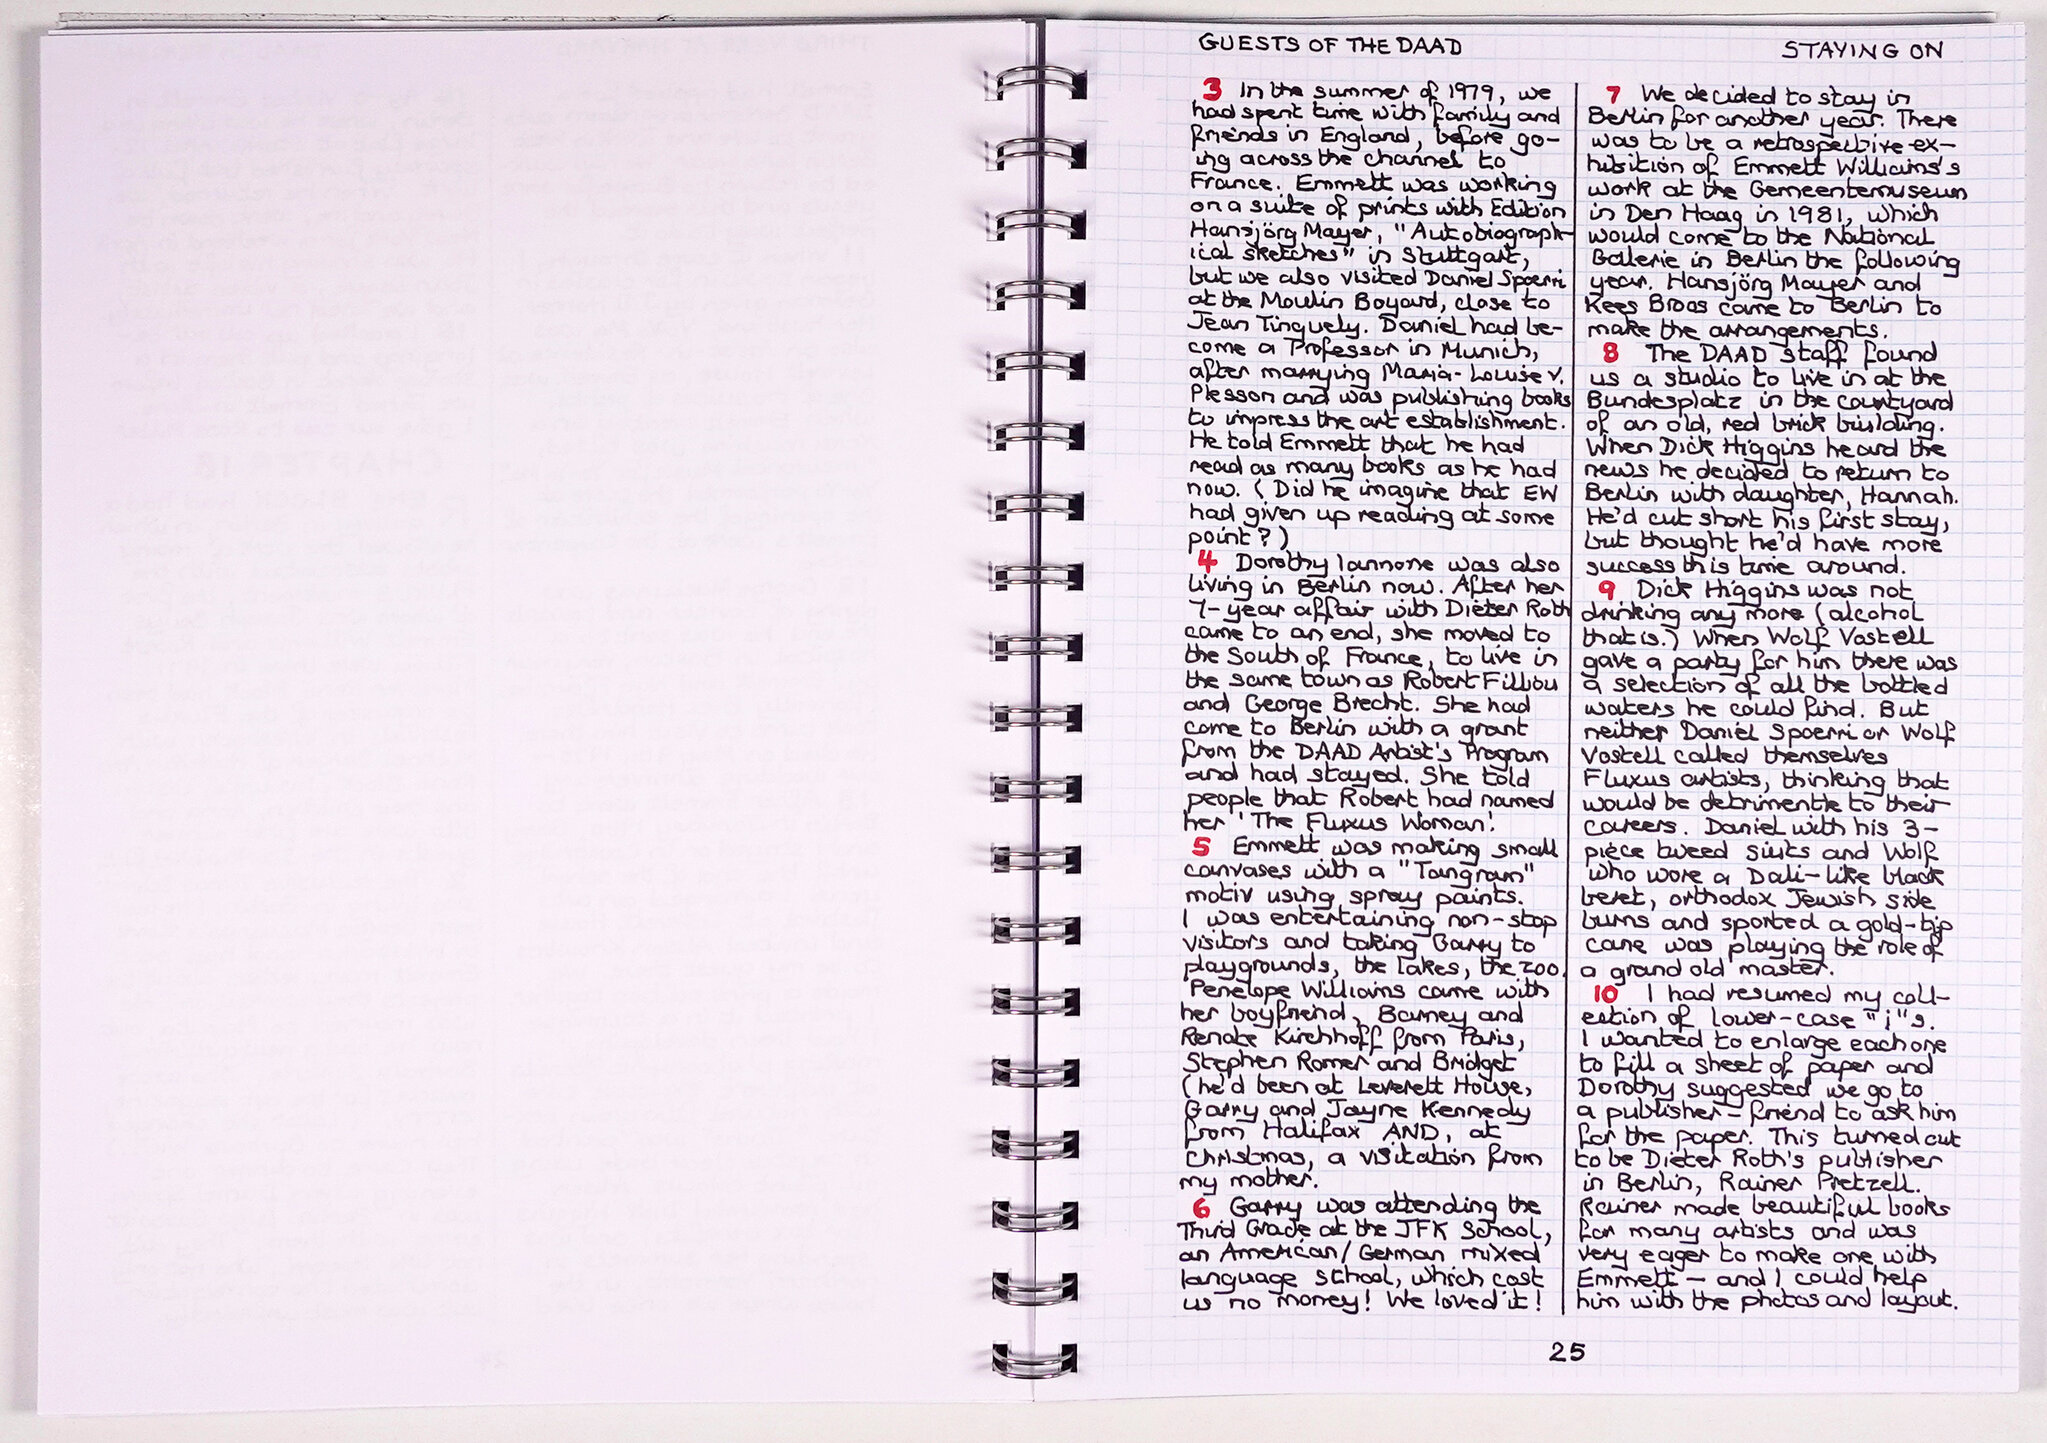 GUESTS OF THE DAAD
STAYING ON
3 In the summer of 1979, we
had spent time with family and
friends in England, before go-
ing across the channel to
France. Emmett was working
on a suite of prints with Edition
Hansjörg Mayer, "Autobiograph-
ical sketches" in Stuttgart,
but we also visited Daniel Spoerri
at the Moulin Boyard, close to
Jean Tinguely. Daniel had be-
come a Professor in Munich,
after marrying Maria-Louise v.
Plesson and was publishing books
to impress the art establishment.
He told Emmett that he had
read as many books as he had
now. (Did he imagine that EW
had given up reading at some
point?)
4 Dorothy Iannone was also
living in Berlin now. After her
7-year affair with Dieter Roth
came to an end, she moved to
the South of France, to live in
the same town as Robert Filliou
and George Brecht. She had
come to Berlin with a grant
from the DAAD Artist's Program
and had stayed. She told
people that Robert had named
her 'The Fluxus Woman'.
5 Emmett was making small
canvases with a "Tangram"
motiv using spray paints.
I was entertaining non-stop
visitors and taking Garry to
playgrounds, the lakes, the zoo.
Penelope Williams came with
her boyfriend, Barney and
Renate Kirchhoff from Paris,
Stephen Romer and Bridget
(he'd been at Leverett House,
Garry and Jayne Kennedy
from Halifax AND, at
Christmas, a visitation from
my mother.
6 Garry was attending the
Third Grade at the JFK School,
an American/German mixed
language school, which cost
us no money! We loved it!
7 We decided to stay in
Berlin for another year. There
was to be a retrospective ex-
hibition of Emmett Williams's
work at the Gemeentemuseum
in Den Haag in 1981, which
would come to the National
Gallerie in Berlin the following
year. Hansjörg Mayer and
Kees Broos came to Berlin to
make the arrangements.
8 The DAAD staff found
us a studio to live in at the
Bundesplatz in the courtyard
of an old, red brick building.
When Dick Higgins heard the
news he decided to return to
Berlin with daughter, Hannah.
He'd cut short his first stay,
but thought he'd have more
success this time around.
9 Dick Higgins was not
drinking any more (alcohol
that is.) When Wolf Vostell
gave a party for him there was
a selection of all the bottled
waters he could find. But
neither Daniel Spoerri or Wolf
Vostell called themselves
Fluxus artists, thinking that
would be detrimentle to their
careers. Daniel with his 3-
piece tweed suits and Wolf
who wore a Dali-like black
beret, orthodox Jewish side
burns and sported a gold-tip
cane was playing the role of
a grand old master.
10 I had resumed my coll-
ection of lower-case "i"s.
I wanted to enlarge each one
to fill a sheet of paper and
Dorothy suggested we go to
a publisher-friend to ask him
for the paper. This turned out
to be Dieter Roth's publisher
in Berlin, Rainer Pretzell.
Rainer made beautiful books
for many artists and was
very eager to make one with
Emmett - and I could help
him with the photos and layout.
25